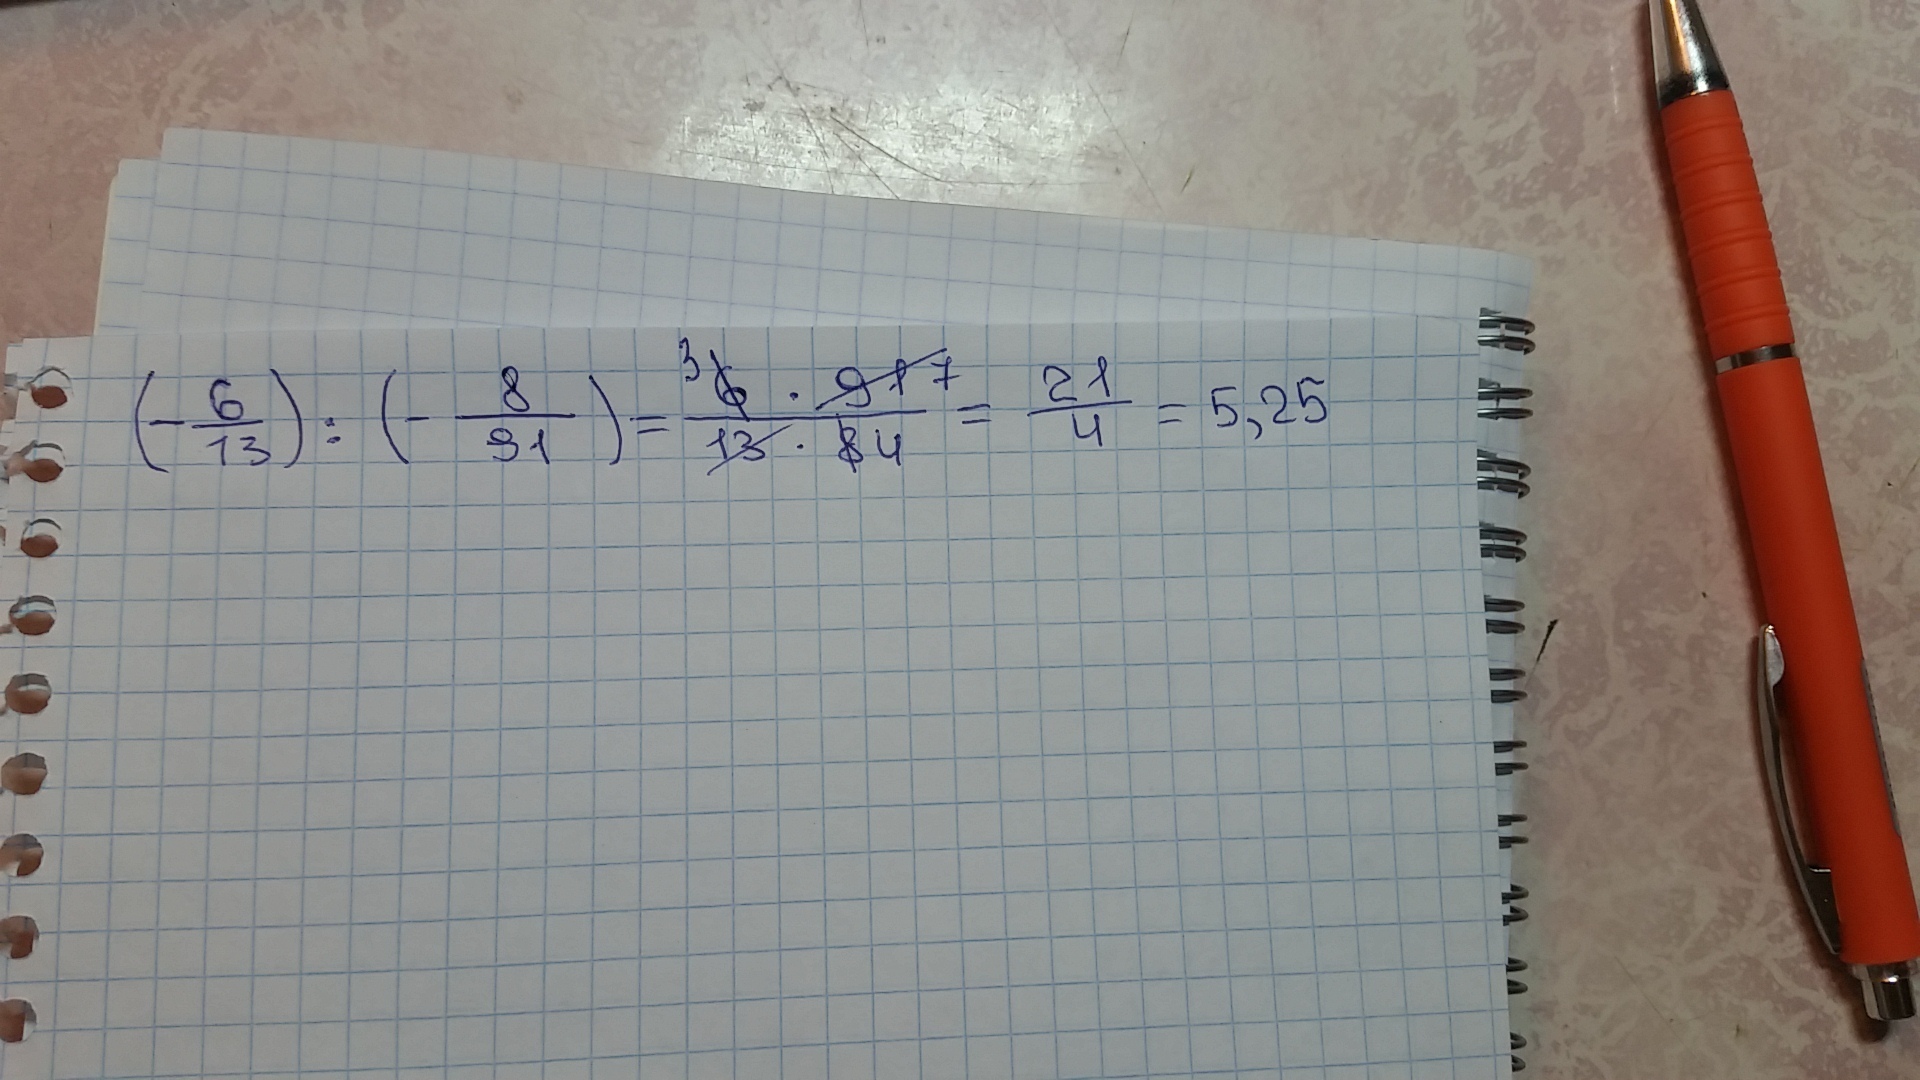 (- 6/13) : (- 8/91) = 3 6 · 91 7 / 13 · 8 4 = 21/4 = 5,25